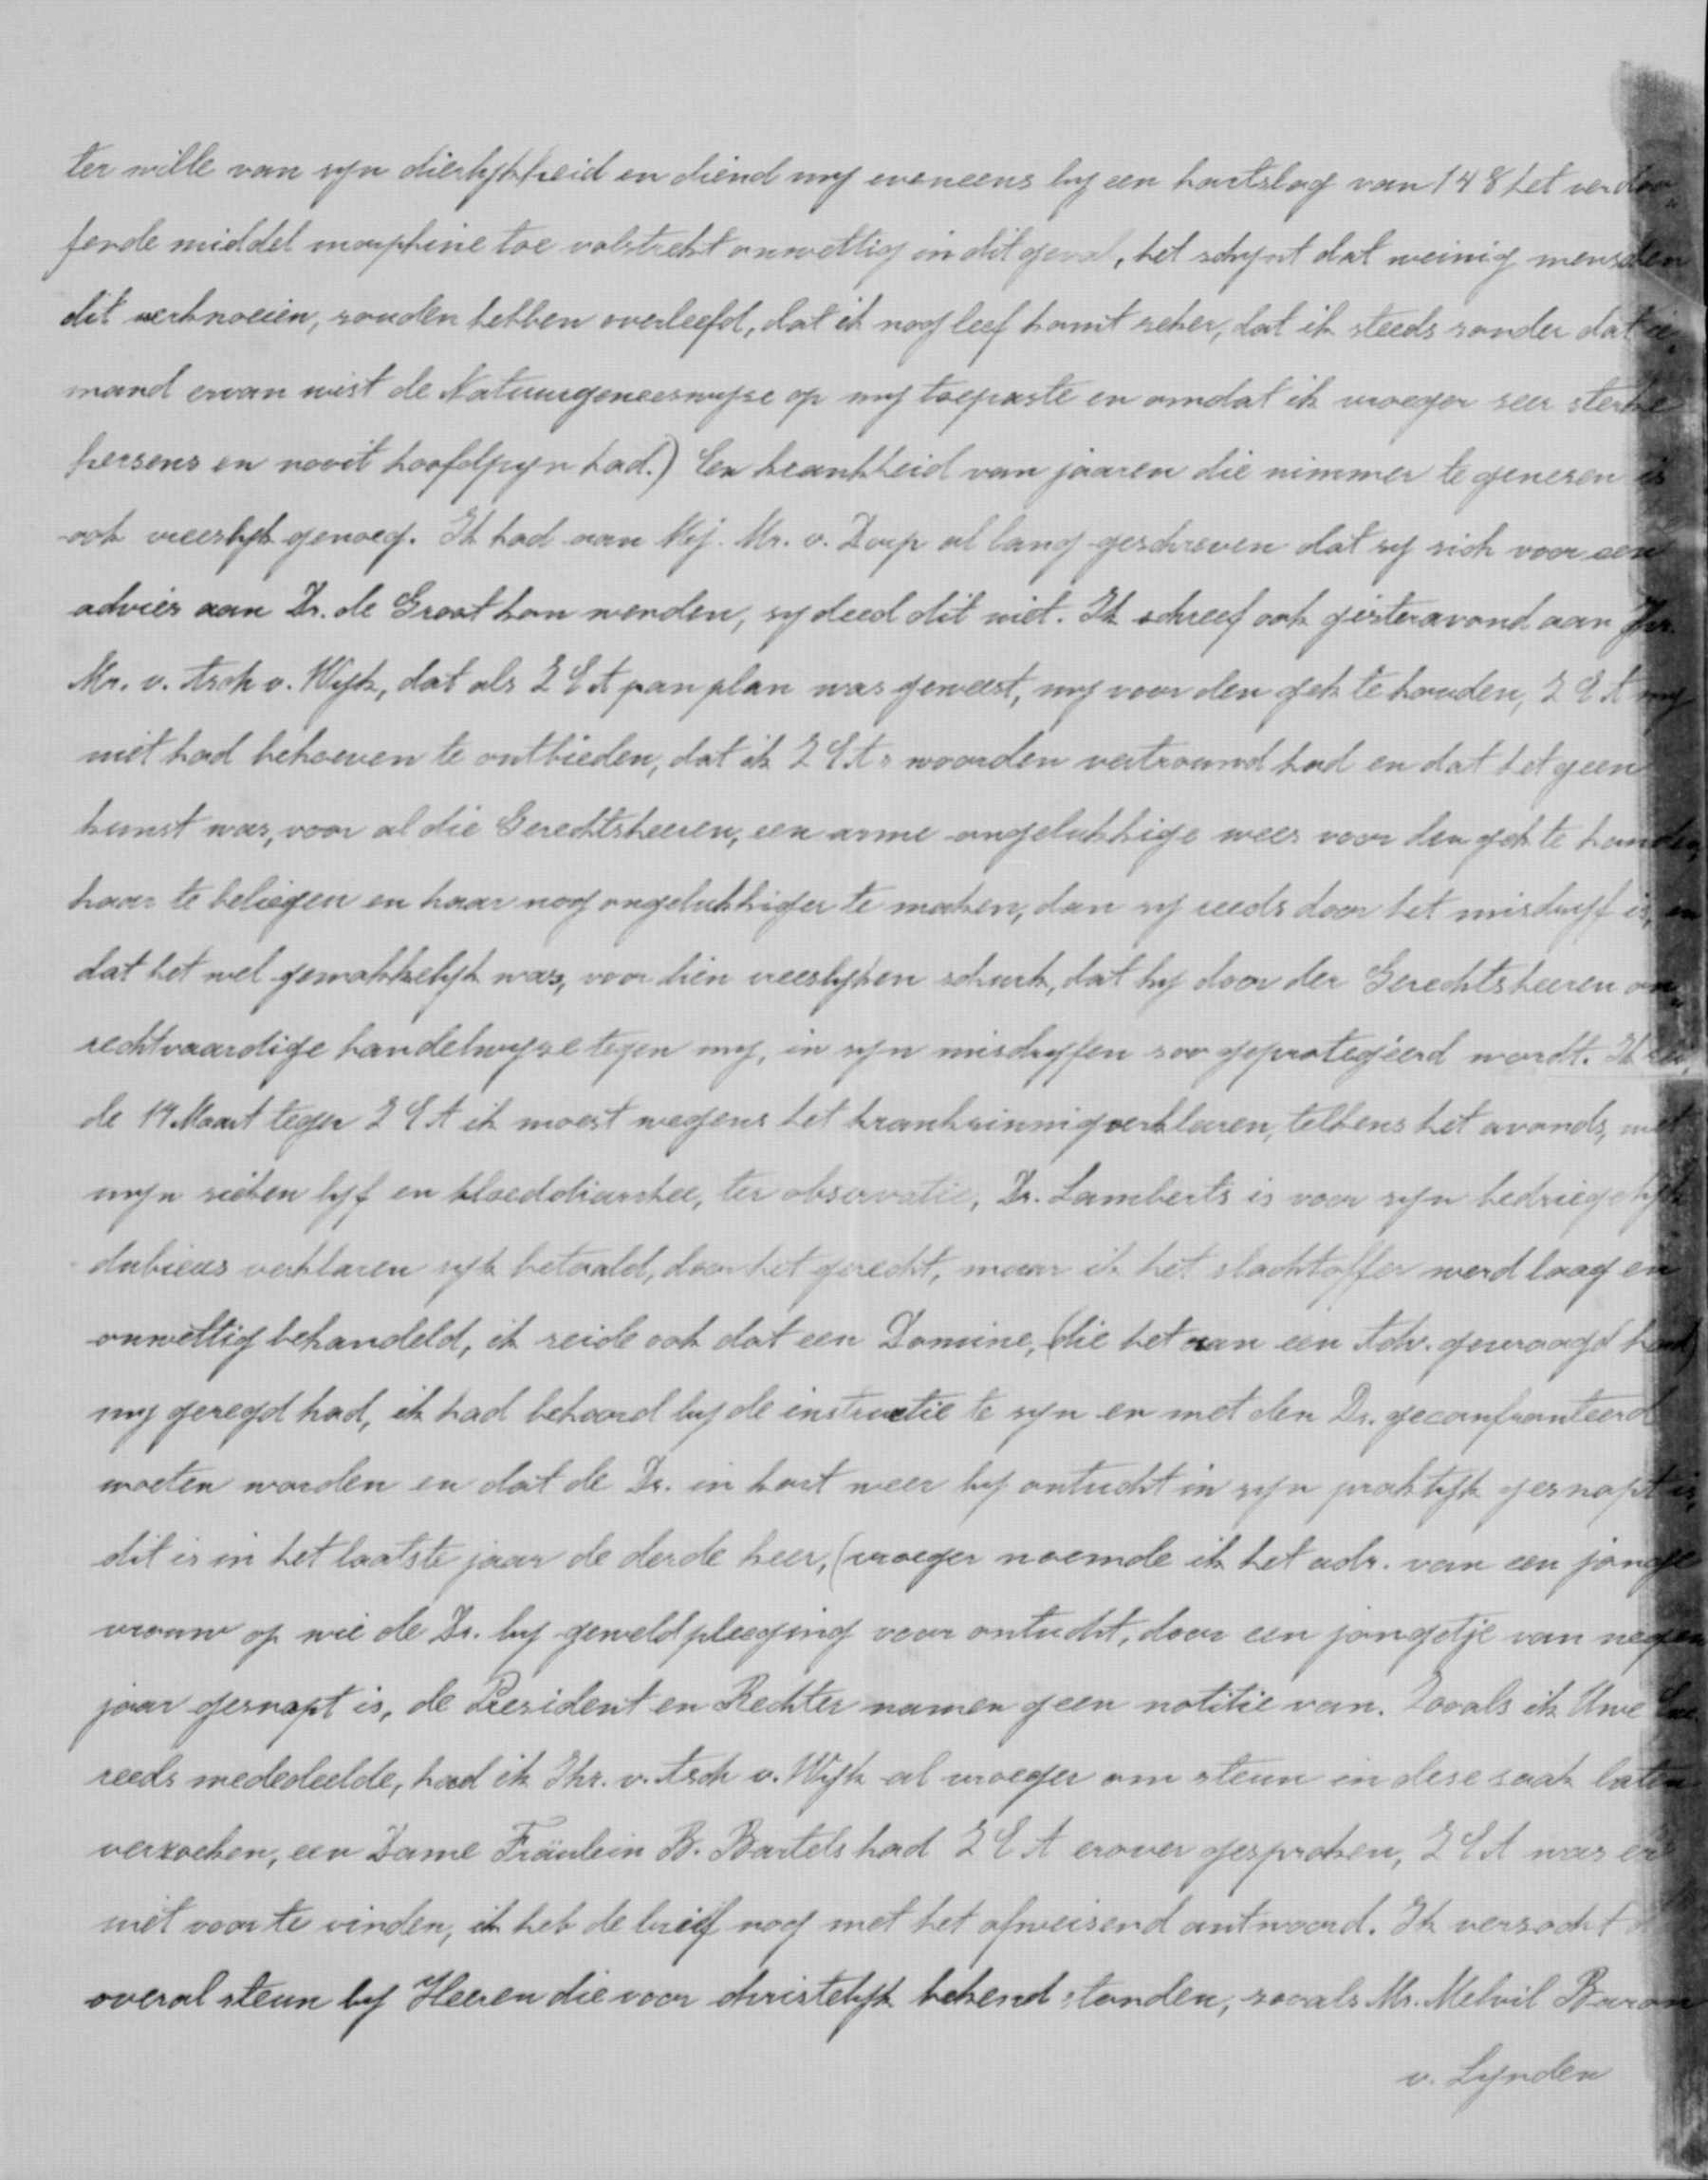 ter wille van syn dierlykheid en diend my eveneens by een hartslag van 148 het verdoo„
fende middel morphine toe volstrekt onwettig in dit geval, het schynt dat weinig menschen
dit verknoeien, souden hebben overleefd, dat ik nog leef komt seker, dat ik steeds sonder dat ie„
mand ervan wist de Natuurgeneeswyse op my toepaste en omdat ik vroeger seer sterke
hersens en nooit hoofdpyn had.) Een krankheid van jaaren die nimmer te genesen is
ook vreeslyk genoeg. Ik had aan Mej. Mr. v. Dorp al lang geschreven dat sy sich voor een
advies aan Dr. de Groot kon wenden, sy deed dit niet. Ik schreef ook gisteravond aan Jhr.
Mr. v. Asch v. Wyk, dat als Z E A van plan was geweest, my voor den gek te houden, Z E A my
niet had behoeven te ontbieden, dat ik Z E A s woorden vertrouwd had en dat het geen
kunst was, voor al die Gerechtsheeren, een arme ongelukkige wees voor den gek te houden,
haar te beliegen en haar nog ongelukkiger te maken, dan sy reeds door het misdryf is, en
dat het wel gemakkelyk was, voor dien vreeslyken schurk, dat hy door der Gerechtsheeren on„
rechtvaardige handelwyse tegen my, in syn misdryfen soo geprotegeerd wordt. Ik sei„
de 19 Maart tegen Z E A ik moest wegens het krankzinnigverklaren, telkens het avonds, met
myn sieken lyf en bloeddiarrhee, ter observatie, Dr. Lamberts is voor syn bedriegelyk
dubieus verklaren ryk betaald, door het gerecht, maar ik het slachtoffer werd laag en
onwettig behandeld, ik seide ook dat een Domine, (die het aan een Adv. gevraagd had)
my gezegd had, ik had behoord by de instructie te syn en met den Dr. geconfronteerd
moeten worden en dat de Dr. in kort weer by ontucht in syn praktyk gesnapt is,
dit is in het laatste jaar de derde keer, (vroeger noemde ik het adr. van een jonge
vrouw op wie de Dr. by geweldpleeging voor ontucht, door een jongetje van negen
jaar gesnapt is, de President en Rechter namen geen notitie van. Zooals ik Uwe Exc.
reeds mededeelde, had ik Jhr. v. Asch v. Wyk al vroeger om steun in dese saak laten
verzoeken, een Dame Fräulein B. Bartels had Z E A erover gesproken, Z E A was er
niet voor te vinden, ik heb de brief nog met het afweisend antwoord. Ik versocht
overal steun by Heeren die voor christelyk bekend stonden, sooals Mr. Melvil Baron
v. Lynden